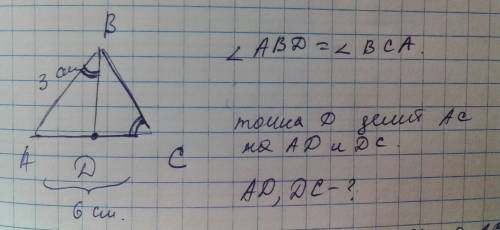 B
∠ ABD = ∠ BCA.
3 см
точка D делит AC
на AD и DC.
A D C
AD, DC - ?
6 см.